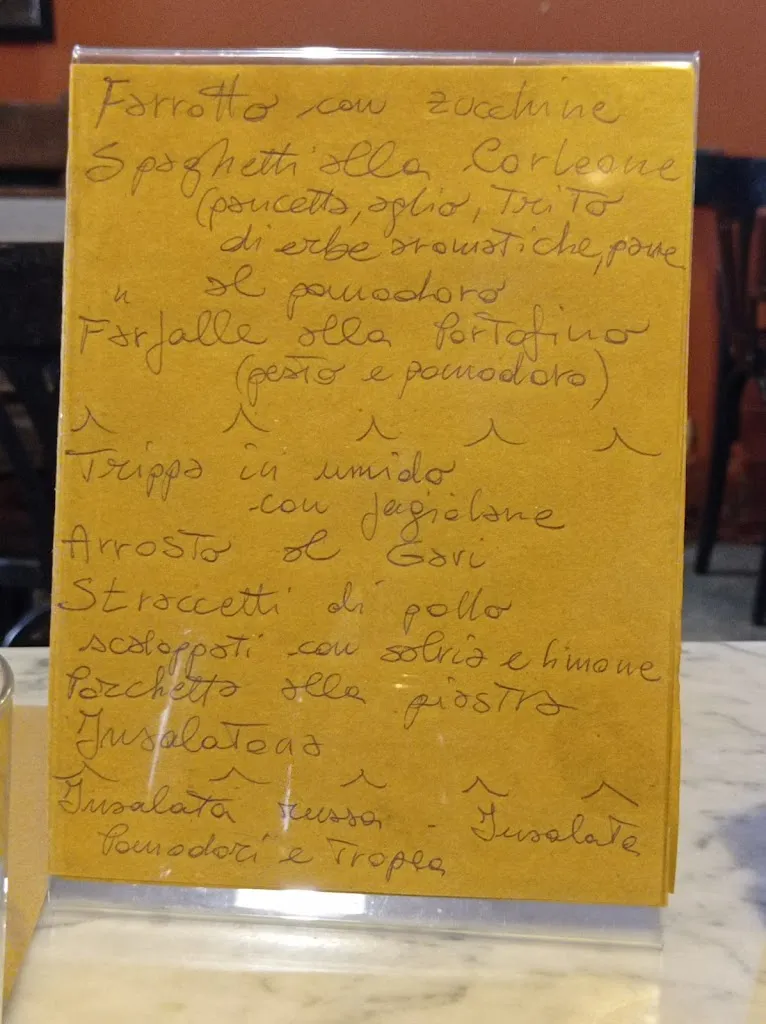 Farrotto con zucchine
Spaghetti alla Corleone
(pancetta, aglio, Trito
di erbe aromatiche, pane
" al pomodoro
Farfalle alla Portofino
(pesto e pomodoro)
Trippa in umido
con fagiolane
Arrosto al Gavi
Straccetti di pollo
scaloppati con salvia e limone
Porchetta alla piastra
Insalatona
Insalata russa - Insalata
Pomodori e Tropea